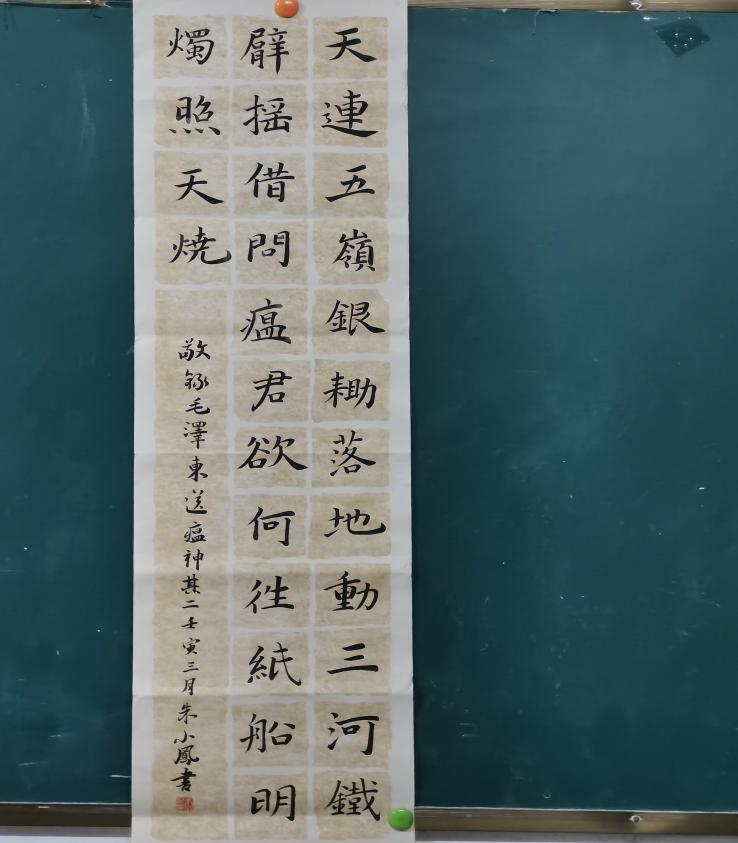 天連五嶺銀耡落地動三河鐵
臂揺借問瘟君欲何往紙船明
燭照天燒
敬錄毛澤東送瘟神其二壬寅三月朱小鳳書